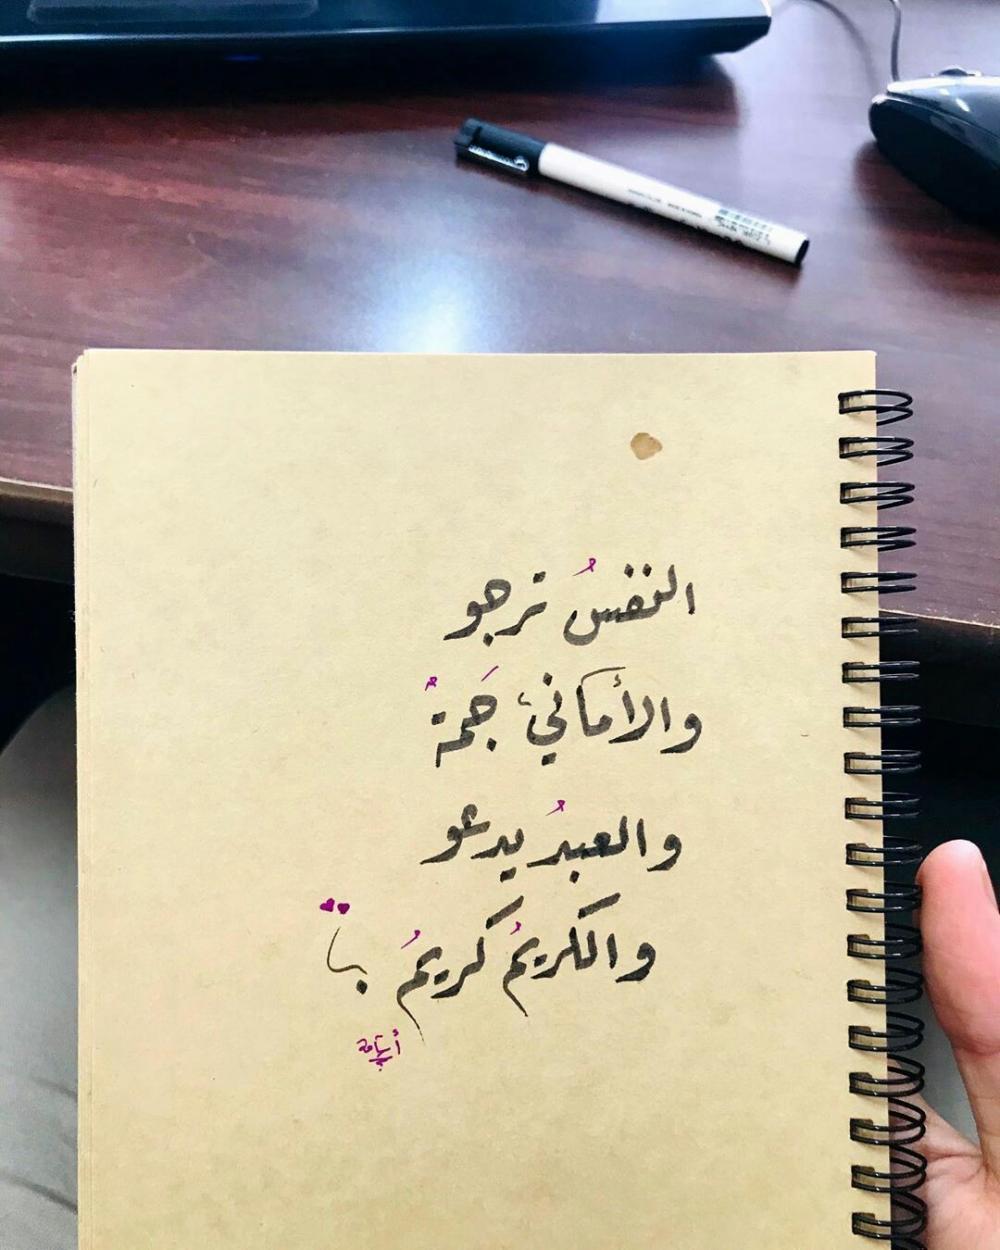 النفسُ ترجو
والأمانيُ جَمةٌ
والعبدُ يدعو
والكريمُ كريمُ